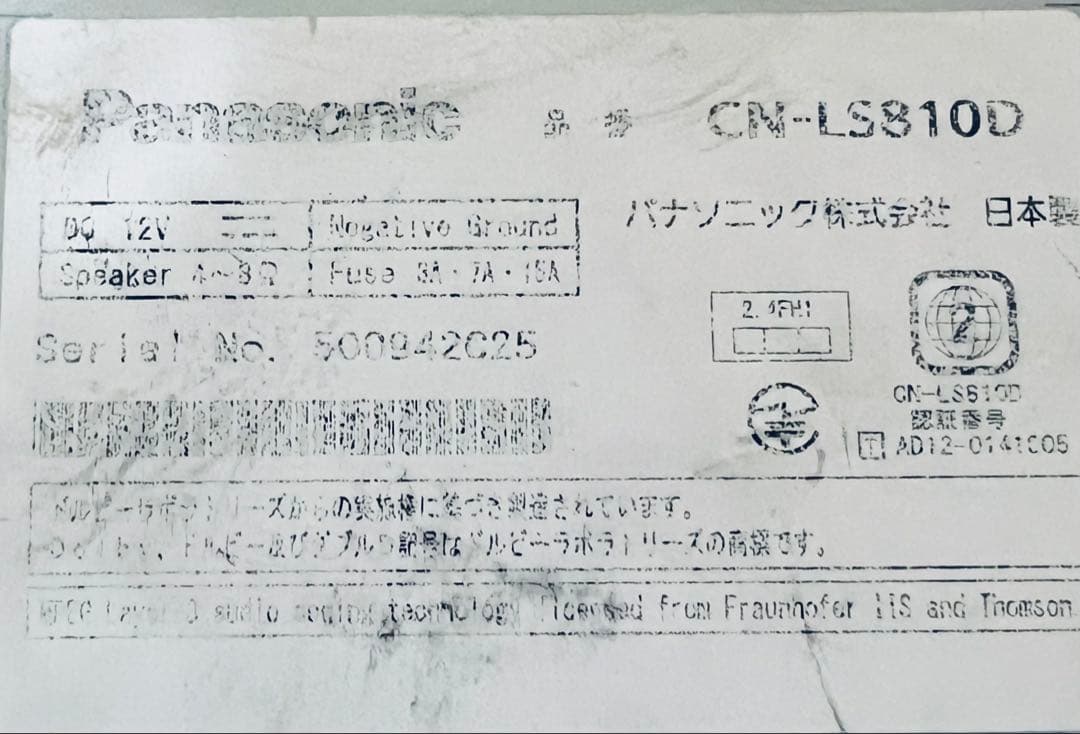 Panasonic 品番 CN-LS810D
DC 12V Negative Ground
Speaker 4〜8Ω Fuse 3A・7A・15A
パナソニック株式会社 日本製
Serial No. 500942C25
2.4FH1
CN-LS810D
認証番号
T AD12-0141C05
ドルビーラボラトリーズからの実施権に基づき製造されています。
Dolby、ドルビー及びダブルD記号はドルビーラボラトリーズの商標です。
MPEG Layer-3 audio coding technology licensed from Fraunhofer IIS and Thomson